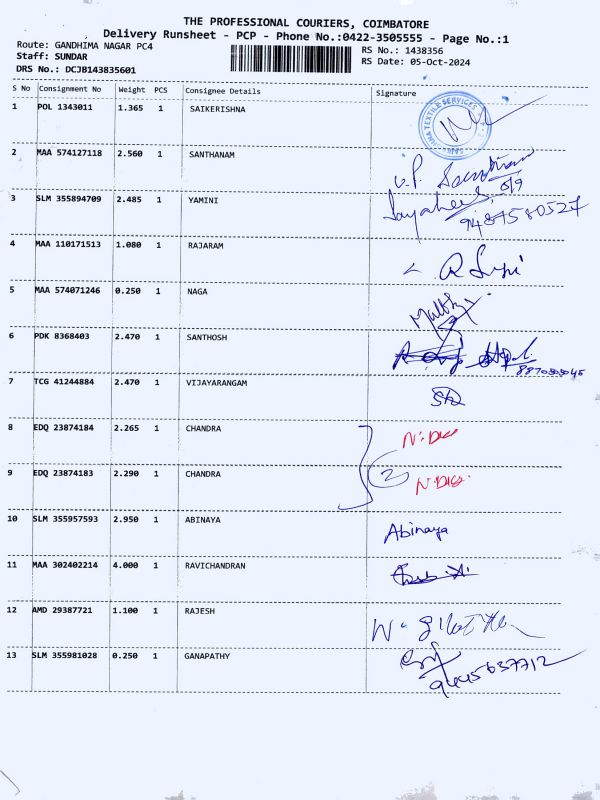 THE PROFESSIONAL COURIERS, COIMBATORE
Delivery Runsheet - PCP - Phone No.:0422-3505555 - Page No.:1
Route: GANDHIMA NAGAR PC4
RS No.: 1438356
Staff: SUNDAR
RS Date: 05-Oct-2024
DRS No.: DCJB143835601
S No Consignment No Weight PCS Consignee Details Signature
1 POL 1343011 1.365 1 SAIKERISHNA
2 MAA 574127118 2.560 1 SANTHANAM
3 SLM 355894709 2.485 1 YAMINI
9487580527
4 MAA 110171513 1.080 1 RAJARAM
5 MAA 574071246 0.250 1 NAGA
6 PDK 8368403 2.470 1 SANTHOSH
7 TCG 41244884 2.470 1 VIJAYARANGAM
8 EDQ 23874184 2.265 1 CHANDRA
2
9 EDQ 23874183 2.290 1 CHANDRA
10 SLM 355957593 2.950 1 ABINAYA Abinaya
11 MAA 302402214 4.000 1 RAVICHANDRAN
12 AMD 29387721 1.100 1 RAJESH
13 SLM 355981028 0.250 1 GANAPATHY